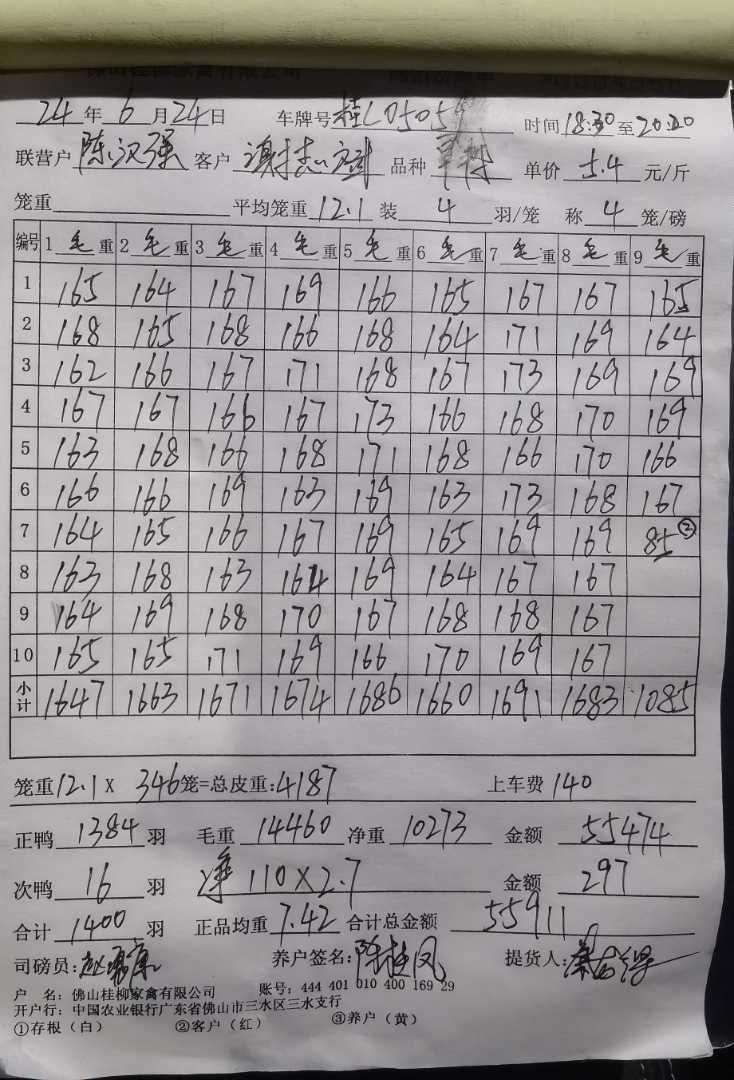 佛山桂柳家禽有限公司
24年6月24日 车牌号桂L05054 时间18:30至20:20
联营户 陈汉强 客户 谢志斌 品种 单价 5.4 元/斤
笼重 平均笼重 12.1 装 4 羽/笼 称 4 笼/磅
编号 1 毛 重 2 毛 重 3 毛 重 4 毛 重 5 毛 重 6 毛 重 7 毛 重 8 毛 重 9 毛 重
1 165 164 167 169 166 165 167 167 165
2 168 165 168 166 168 164 171 169 164
3 162 166 167 171 168 167 173 169 169
4 167 167 166 167 173 166 168 170 169
5 163 168 166 168 171 168 166 170 166
6 166 166 169 163 169 163 173 168 167
7 164 165 166 167 169 165 169 169 85②
8 163 168 163 164 169 164 167 167
9 164 169 168 170 167 168 168 167
10 165 165 171 169 166 170 169 167
小计 1647 1663 1671 1674 1686 1660 1691 1683 1085
笼重12.1× 346笼=总皮重:4187 上车费 140
正鸭 1384 羽 毛重 14460 净重 10273 金额 55474
次鸭 16 羽 净 110×2.7 金额 297
合计 1400 羽 正品均重 7.42 合计总金额 55911
司磅员: 养户签名:陈桂凤 提货人:
户 名:佛山桂柳家禽有限公司 账号:444 401 010 400 169 29
开户行:中国农业银行广东省佛山市三水区三水支行
①存根(白) ②客户(红) ③养户(黄)